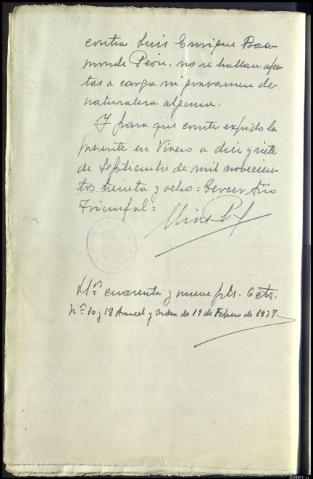 contra Luis Enrique Baa-
monde Peón, no se hallan afec-
tas a carga ni gravamen de
naturaleza alguna.
Y para que conste expido la
presente en Vivero a diez y siete
de Septiembre de mil novecien-
tos treinta y ocho = Tercer Año
Triunfal =
Hs. cuarenta y nueve pts. cts.
Nos. 10 y 18 Arancel y Orden de 19 de Febrero de 1937.